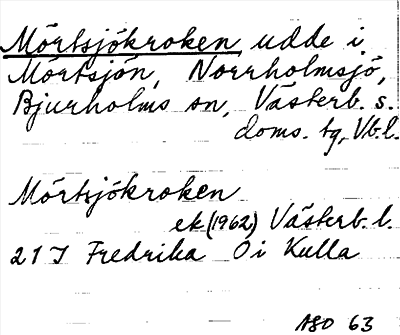 Mörtsjökroken, udde i
Mörtsjön, Norrholmsjö,
Bjurholms sn, Västerb. s.
doms. tg, Vb.l.
Mörtsjökroken
ek (1962) Västerb. l.
21 J Fredrika 0 i Kulla
ASO 63